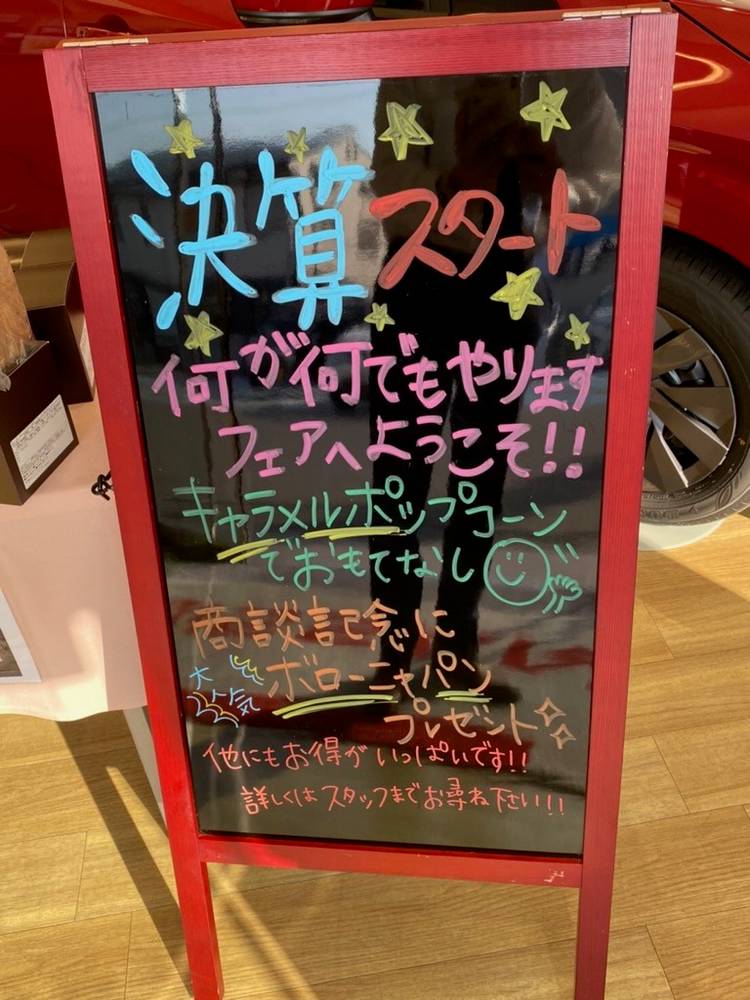 決算スタート
何が何でもやります
フェアへようこそ!!
キャラメルポップコーン
でおもてなし
商談記念に
大人気
ボローニャパン
プレゼント
他にもお得がいっぱいです!!
詳しくはスタッフまでお尋ね下さい!!